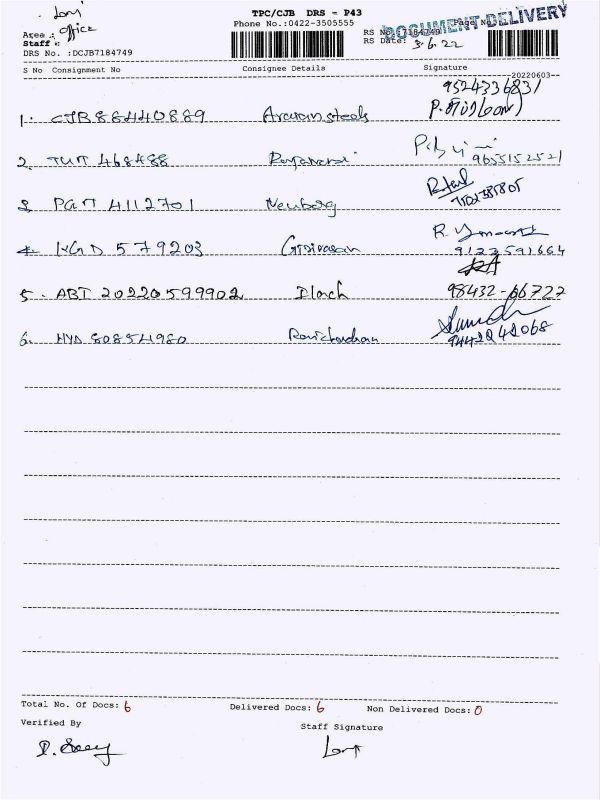 Loni
TPC/CJB DRS - P43
DOCUMENT DELIVERY
Area : Office
Phone No.:0422-3505555
Page No
Staff :
RS No 7184749
DRS No. :DCJB7184749
RS Date: 3.6.22
S No Consignment No Consignee Details Signature
20220603
9524336831
1. CJB86440889 Aravan steels
2. TUT 468488 9655152521
3 PGT 4112701 Neuberg
4. KGD 579203 Grinivasan 9123591664
5. ABT 20220599902 98432-66722
6. HYD 80854980 Ravichandran 9442242068
Total No. Of Docs: 6 Delivered Docs: 6 Non Delivered Docs: 0
Verified By Staff Signature